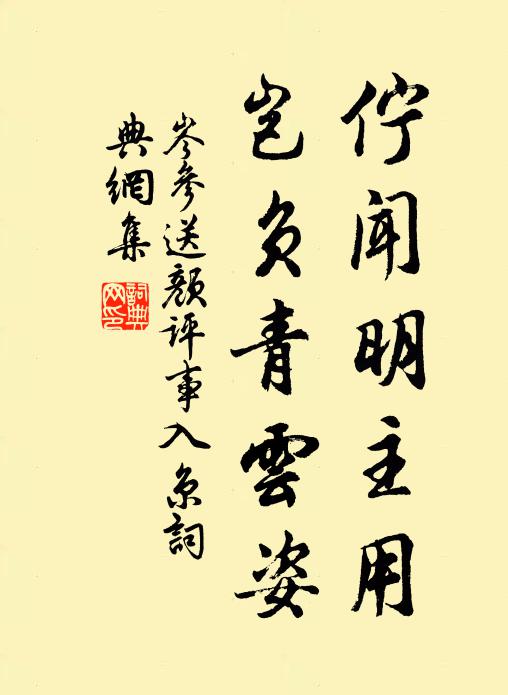 佇聞明主用
豈負青雲姿
岑參送顏評事入京詞
典網集
詞典網印